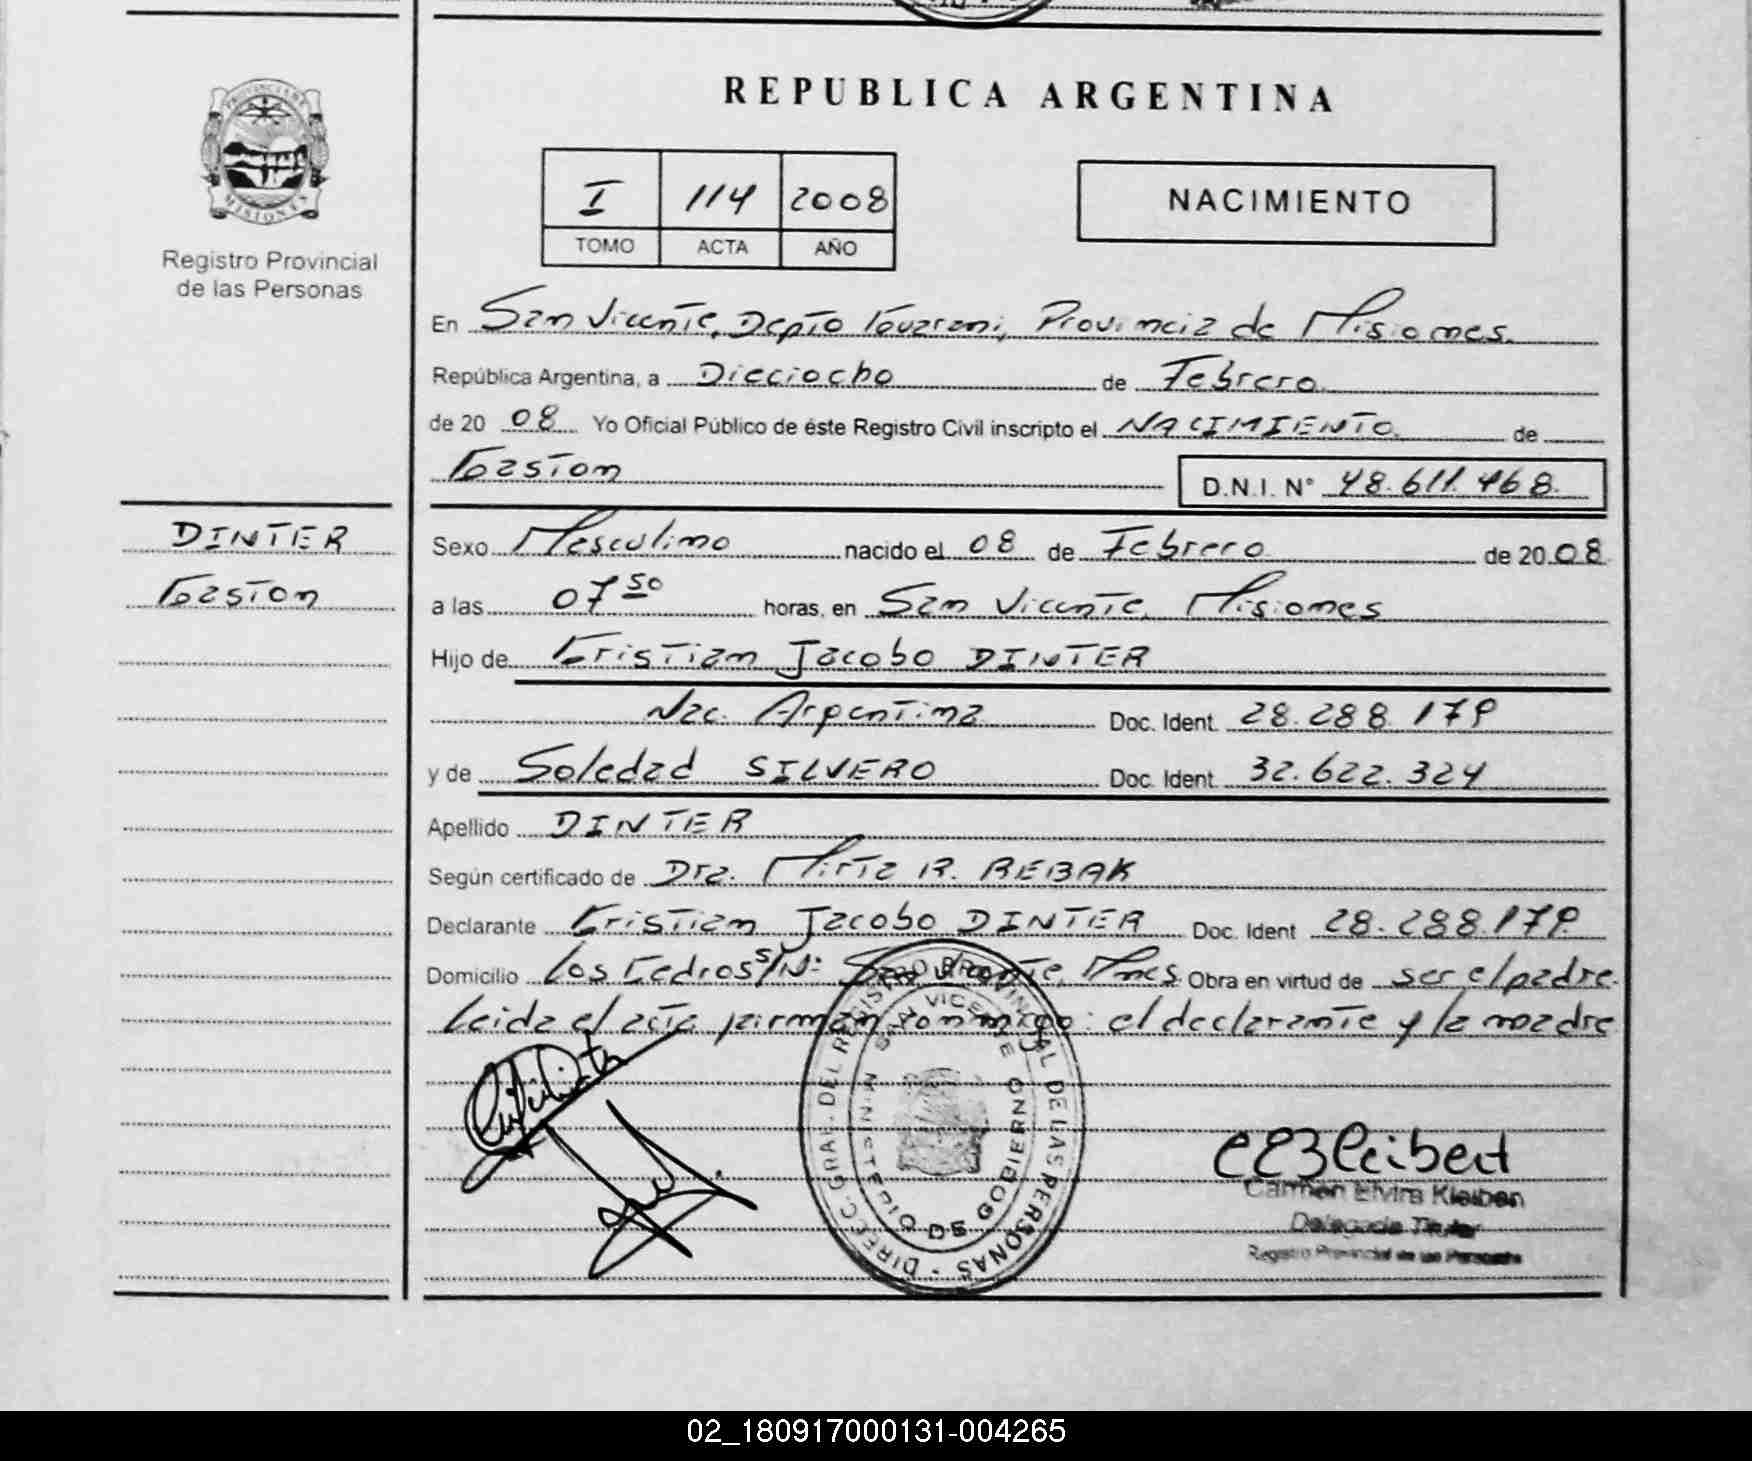 REPUBLICA ARGENTINA
PROVINCIA DE
MISIONES
Registro Provincial
de las Personas
I 114 2008
TOMO ACTA AÑO
NACIMIENTO
En San Vicente, Depto Guarani, Provincia de Misiones.
República Argentina, a Dieciocho de Febrero
de 20 08 Yo Oficial Público de éste Registro Civil inscripto el NACIMIENTO de
Gaston
D.N.I. N° 48.611.468.
DINTER
Gaston
Sexo Masculino nacido el 08 de Febrero de 20 08
a las 07 50 horas, en San Vicente, Misiones
Hijo de Cristian Jacobo DINTER
Nac. Argentina Doc. Ident. 28.288.179
y de Soledad SILVERO Doc. Ident. 32.622.324
Apellido DINTER
Según certificado de Dra. Mirta R. REBAK
Declarante Cristian Jacobo DINTER Doc. Ident 28.288.179.
Domicilio Los Cedros S/N: San Vicente, Mnes. Obra en virtud de ser el padre.
Leida el acta firman conmigo: el declarante y la madre
DIREC. GRAL. DEL REGISTRO PROVINCIAL DE LAS PERSONAS
SAN VICENTE
MINISTERIO DE GOBIERNO
Carmen Elvira Kleibert
Delegada Titular
Registro Provincial de las Personas
02_180917000131-004265